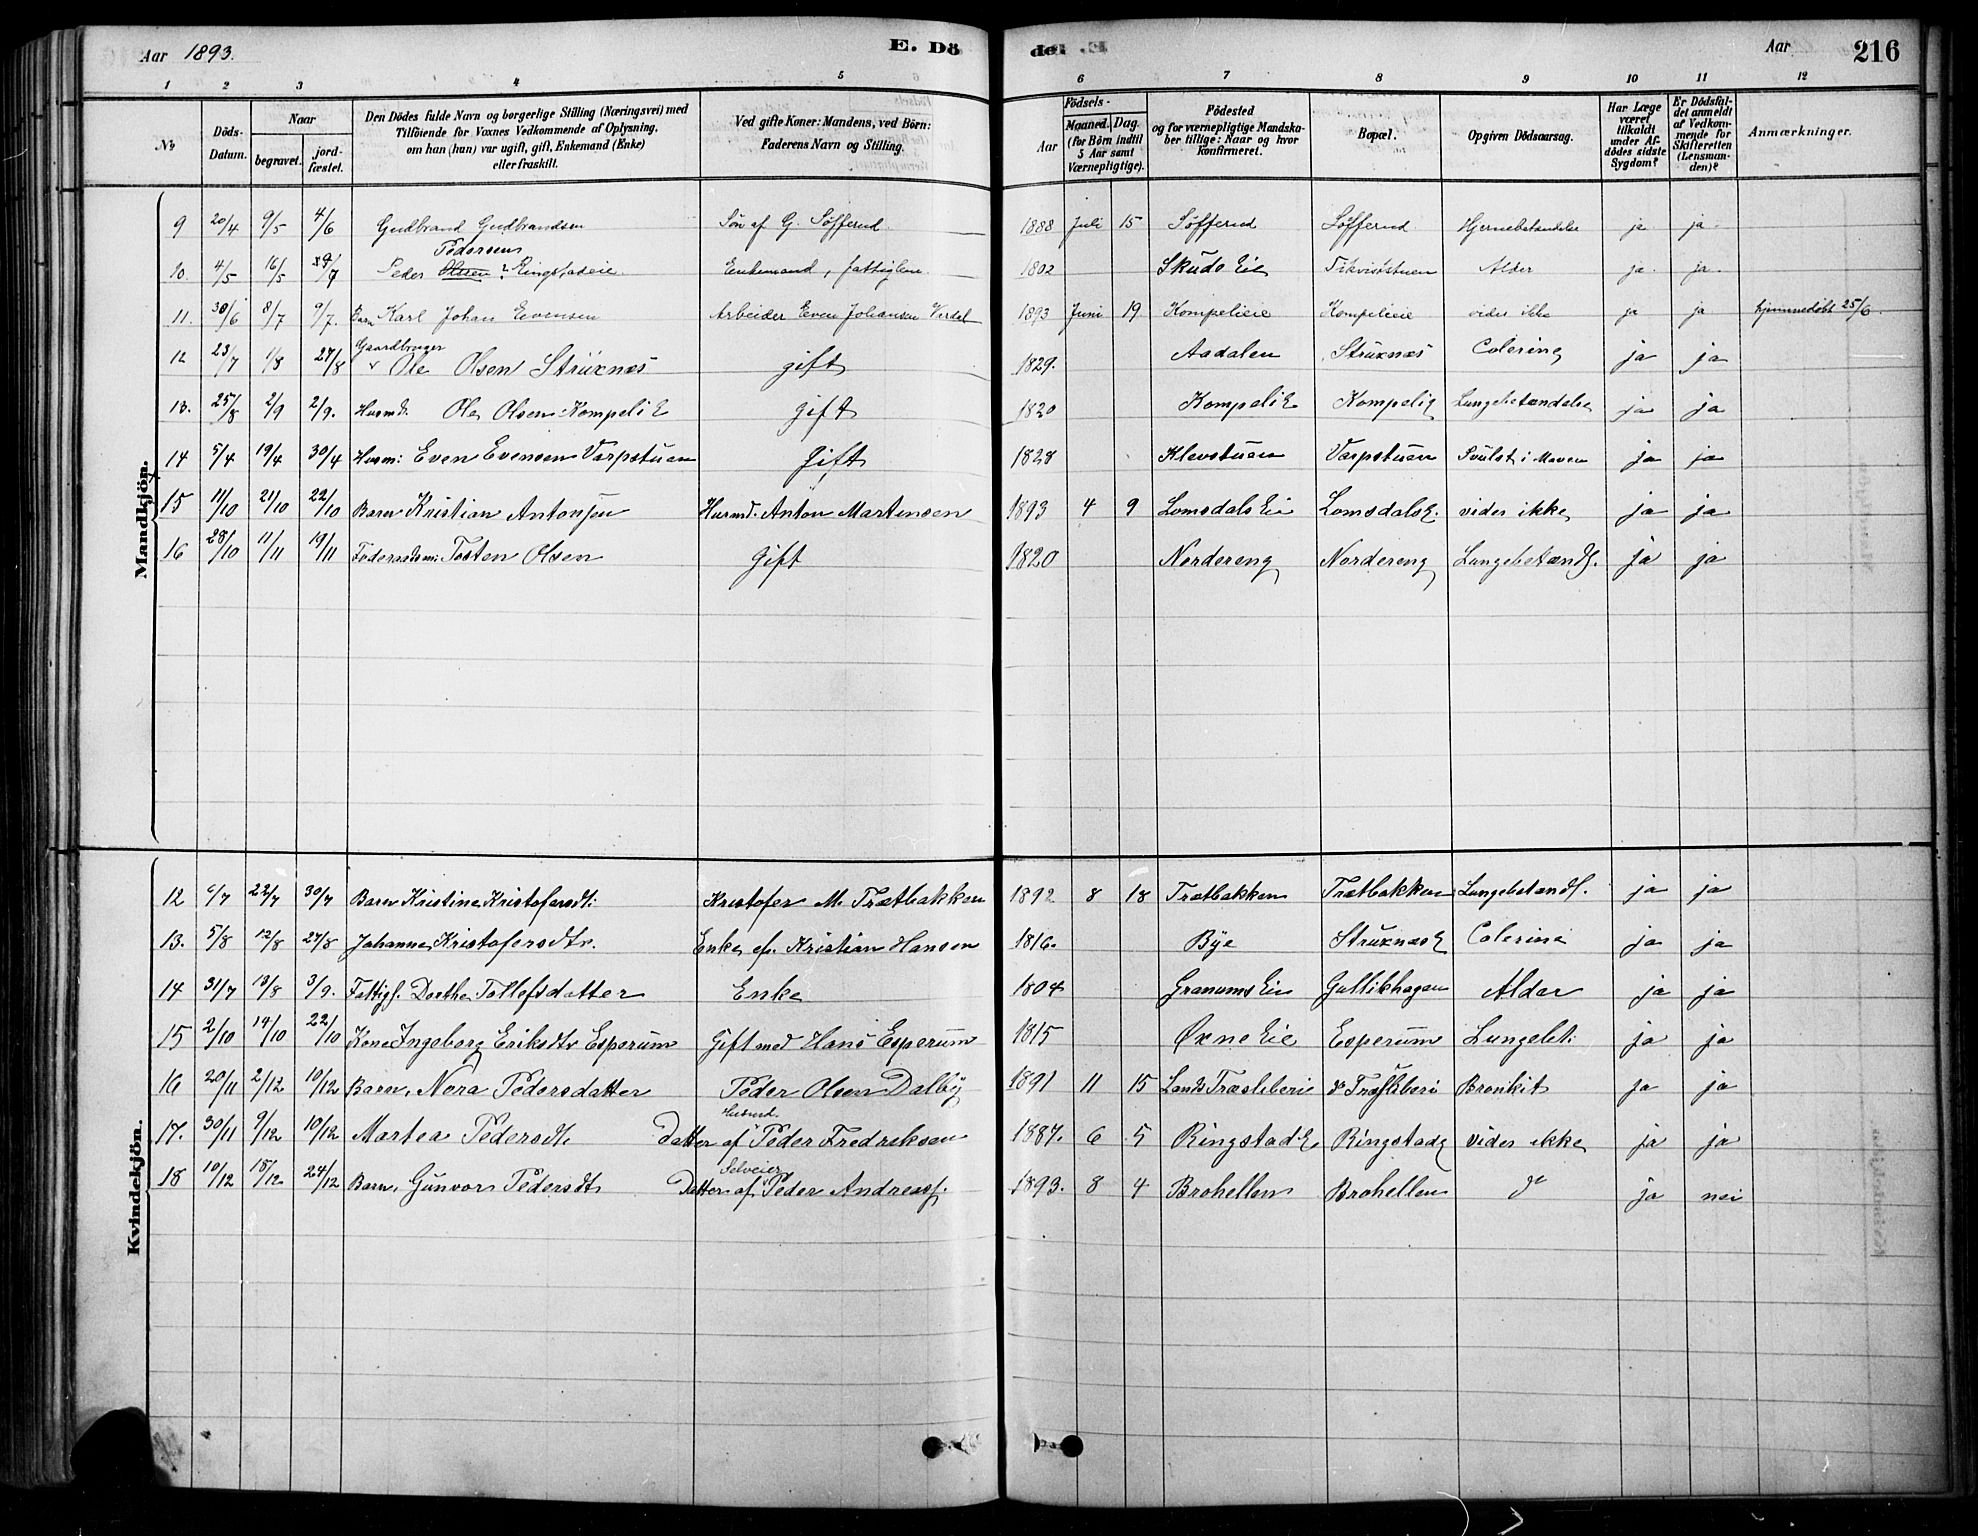 Aar 1893.
E. Dö
del E.
Aar
216
1 2 3 4 5 6 7 8 9 10 11 12
No
Döds-Datum.
Naar
begravet.
jord-fæstet.
Den Dödes fulde Navn og borgerlige Stilling (Næringsvei) med Tilföiende for Voxnes Vedkommende af Oplysning, om han (hun) var ugift, gift, Enkemand (Enke) eller fraskilt.
Ved gifte Koner: Mandens, ved Börn: Faderens Navn og Stilling.
Födsels-
Aar
Maaned. Dag.
(for Börn indtil 5 Aar samt Værnepligtige).
Födested og for værnepligtige Mandskaber tillige: Naar og hvor Konfirmeret.
Bopæl.
Opgiven Dödsaarsag.
Har Læge været tilkaldt under Afdödes sidste Sygdom?
Er Dödsfaldet anmeldt af Vedkommende for Skifteretten (Lensmanden)?
Anmærkninger.
Mandkjön.
9 20/4 9/5 4/6 Gudbrand Gudbrandsen Sön af G. Söfferud. 1888 Juli 15 Söfferud Söfferud Hjernebetændelse ja ja.
Pedersen
10. 4/5 16/5 9/7 Peder Olsen Ringstadeie. Enkemand, fattiglem. 1802 Skuds Eie Tikviststuen Alder ja. ja.
11. 30/6 8/7 9/7. Barn Karl Johan Evensen Arbeider Even Johansen Verdal 1893 Juni 19 Kompelieie Kompelieie vides ikke ja ja hjemmedöbt 25/6.
Gaardbruger
12 23/7 1/8 27/8 Ole Olsen Strüxnæs gift 1829. Aadalen Strüxnæs Colerine ja ja
13. 25/8 2/9 2/9. Husmd. Ole Olsen Kompeli E gift 1820 Kompeli E Kompeli E Lungebetændelse ja ja
14 5/4 19/4 30/4 Husm: Even Evensen Varpstuen Gift 1828 Klevstuen Varpstuen Svülst i Maven ja ja
15 11/10 21/10 22/10 Barn Kristian Antonsen Husmd. Anton Martinsen 1893 4 9 Lomsdals Eie Lomsdals E. vides ikke ja ja
16 28/10 11/11 19/11 Föderaadsm: Tosten Olsen Gift 1820 Nordereng Nordereng Lungebetændl. ja ja
Kvindekjön.
12 6/7 22/7 30/7 Barn Kristine Kristofersdt: Kristofer M. Trætbakken 1892 8 18 Trætbakken Trætbakken Lungebetændl. ja ja
13. 5/8 12/8 27/8 Johanne Kristofersdtr. Enke ef. Kristian Hansen 1816. Bÿe Strüxnæs E Colerine ja ja
14 31/7 13/8 3/9. Fattigl. Dorthe Tollefsdatter Enke 1804 Granums Eie Gullikhagen Alder ja ja
15 2/10 14/10 22/10 Kone Ingeborg Eriksdtr Esperum Gift med Hans Esperum 1815 Øxne Eie Esperum Lungebet: ja ja
16 20/11 2/12 10/12 Barn, Nora Pedersdatter Peder Olsen Dalby 1891 11 15 Lands Træsliberi do Træsliberi Bronkit ja ja
Husmd.
17. 30/11 9/12 10/12 Martea Pedersdt. Datter af Peder Fredriksen 1887. 6 5 Ringstad E Ringstad E vides ikke ja ja
Selveier
18 10/12 18/12 24/12 Barn, Gunvor Pedersdt Datter af Peder Andreass. 1893. 8 4 Brohellen Brohellen do ja nei